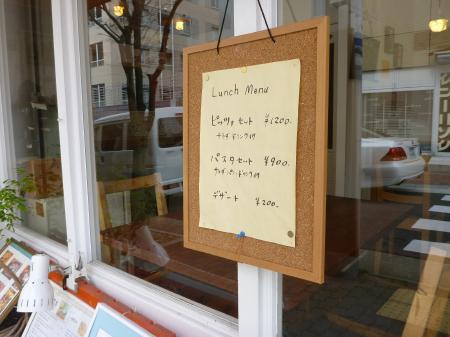 Lunch Menu
ピッツァセット ¥1200.
サラダ・ドリンク付
パスタセット ¥900.
サラダ・パン・ドリンク付
デザート ¥200.